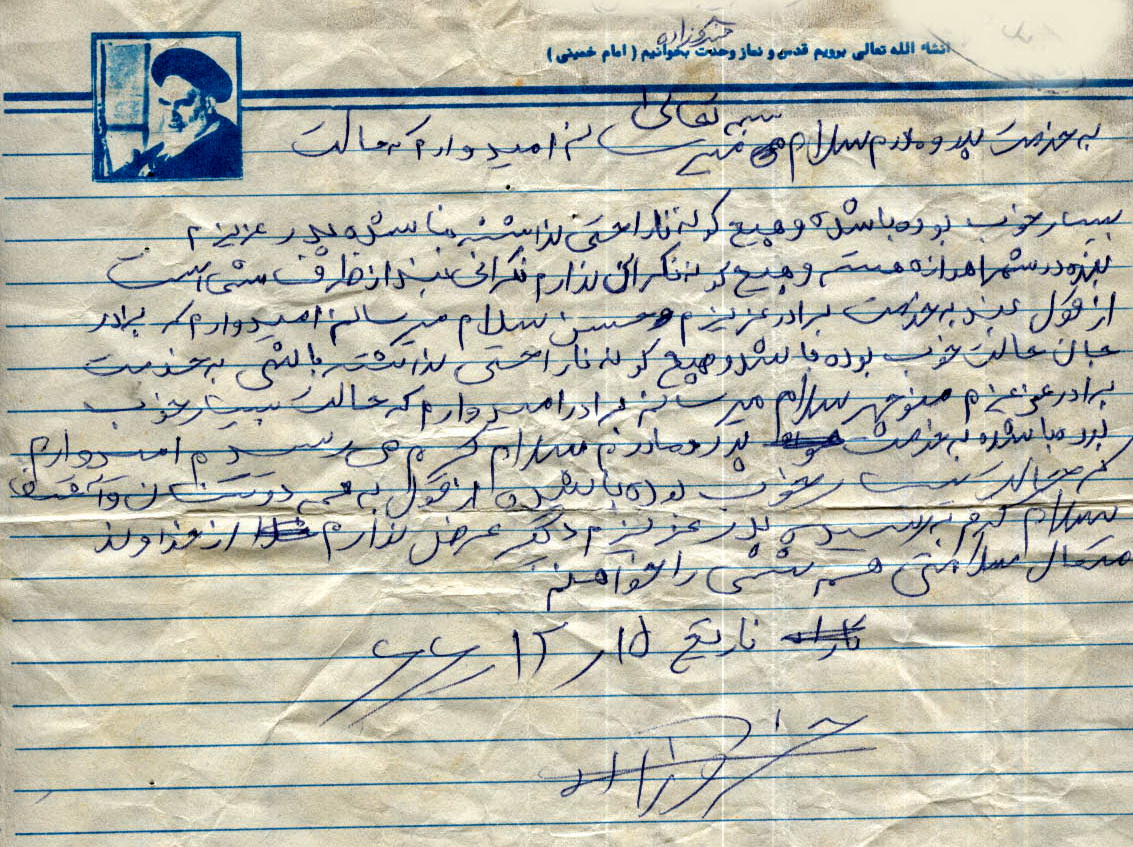 انشاء الله تعالی برویم قدس و نماز وحدت بخوانیم ( امام خمینی )
بسمه تعالی
به خدمت پدر و مادرم سلام می رسانم امیدوارم که حالت
بسیار خوب بوده باشد و هیچ گونه ناراحتی نداشته باشد پدر عزیزم
بنده در شهر اهواز هستم و هیچ گونه نگرانی ندارم نگرانی بنده از طرف شمی است
از قول بنده به خدمت برادر عزیزم حسن سلام میرسانم امیدوارم که برادر
جان حالت خوب بوده باشد و هیچ گونه ناراحتی نداشته باشی به خدمت
برادر عزیزم منوچهر سلام میرسانم برادر امیدوارم که حالت بسیار خوب
بوده باشد به خدمت پدر و مادرم سلام گرم می رسانم امیدوارم
که حالت بسیار خوب بوده باشد از قول به همه دوستان و
سلام گرم برسانید پدر عزیزم دگر عرض ندارم از خداوند
متعال سلامتی همه شمی را خواهانم
تاریخ ۱۵ ر ۱۲ ر ۶۶